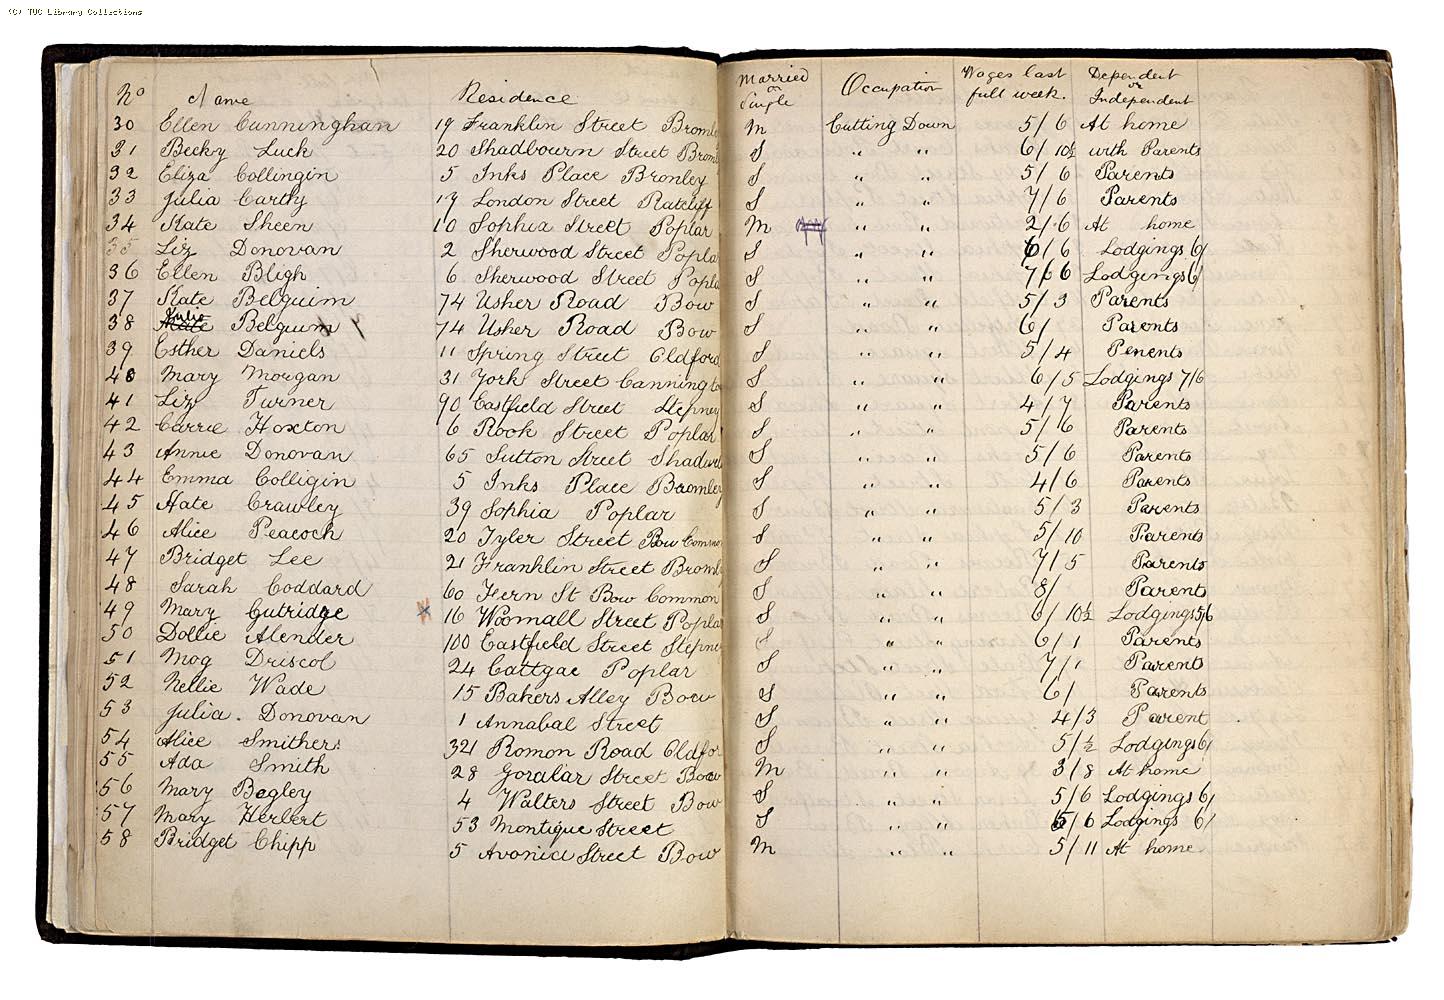 (C) TUC Library Collections
No Name Residence Married or Single Occupation Wages last full week. Dependent or Independent
30 Ellen Cunninghan 19 Franklin Street Bromley M Cutting Down 5/6 At home
31 Becky Luck 20 Shadbourn Street Brom S " " 6/10½ with Parents
32 Eliza Collingin 5 Inks Place Bromley S " " 5/6 Parents
33 Julia Carthy 19 London Street Ratcliff S " " 7/6 Parents
34 Kate Sheen 10 Sophia Street Poplar M " " 2/6 At home
35 Liz Donovan 2 Sherwood Street Popla S " " 6/6 Lodgings 6/
36 Ellen Bligh 6 Sherwood Street Popla S " " 7/6 Lodgings 6/
37 Kate Belguim 74 Usher Road Bow S " " 5/3 Parents
38 Julia Belguim 74 Usher Road Bow S " " 6/ Parents
39 Esther Daniels 11 Spring Street Oldford S " " 5/4 Penents
40 Mary Morgan 31 York Street Cannington S " " 6/5 Lodgings 7/6
41 Liz Turner 90 Eastfield Street Stepney S " " 4/7 Parents
42 Carrie Hoxton 6 Rook Street Poplar S " " 5/6 Parents
43 Annie Donovan 65 Sutton Street Shadwe S " " 5/6 Parents
44 Emma Colligin 5 Inks Place Bromley S " " 4/6 Parents
45 Kate Crawley 39 Sophia Poplar S " " 5/3 Parents
46 Alice Peacoch 20 Tyler Street Bow Common S " " 5/10 Parents
47 Bridget Lee 21 Franklin Street Broml S " " 7/5 Parents
48 Sarah Goddard 60 Fern St Bow Common S " " 8/ Parents
49 Mary Gutridge 16 Woomall Street Popla S " " 6/10½ Lodgings 5/6
50 Dollie Alender 100 Eastfield Street Stepne S " " 6/1 Parents
51 Mog Driscol 24 Cattgae Poplar S " " 7/1 Parents
52 Nellie Wade 15 Bakers Alley Bow S " " 6/ Parents
53 Julia. Donovan 1 Annabal Street S " " 4/3 Parent
54 Alice Smithers 321 Romon Road Oldfor S " " 5/½ Lodgings 6/
55 Ada Smith 28 Goralar Street Bow M " " 3/8 At home
56 Mary Bagley 4 Walters Street Bow S " " 5/6 Lodgings 6/
57 Mary Herbert 53 Montique Street S " " 5/6 Lodgings 6/
58 Bridget Chipp 5 Avonici Street Bow M " " 5/11 At home